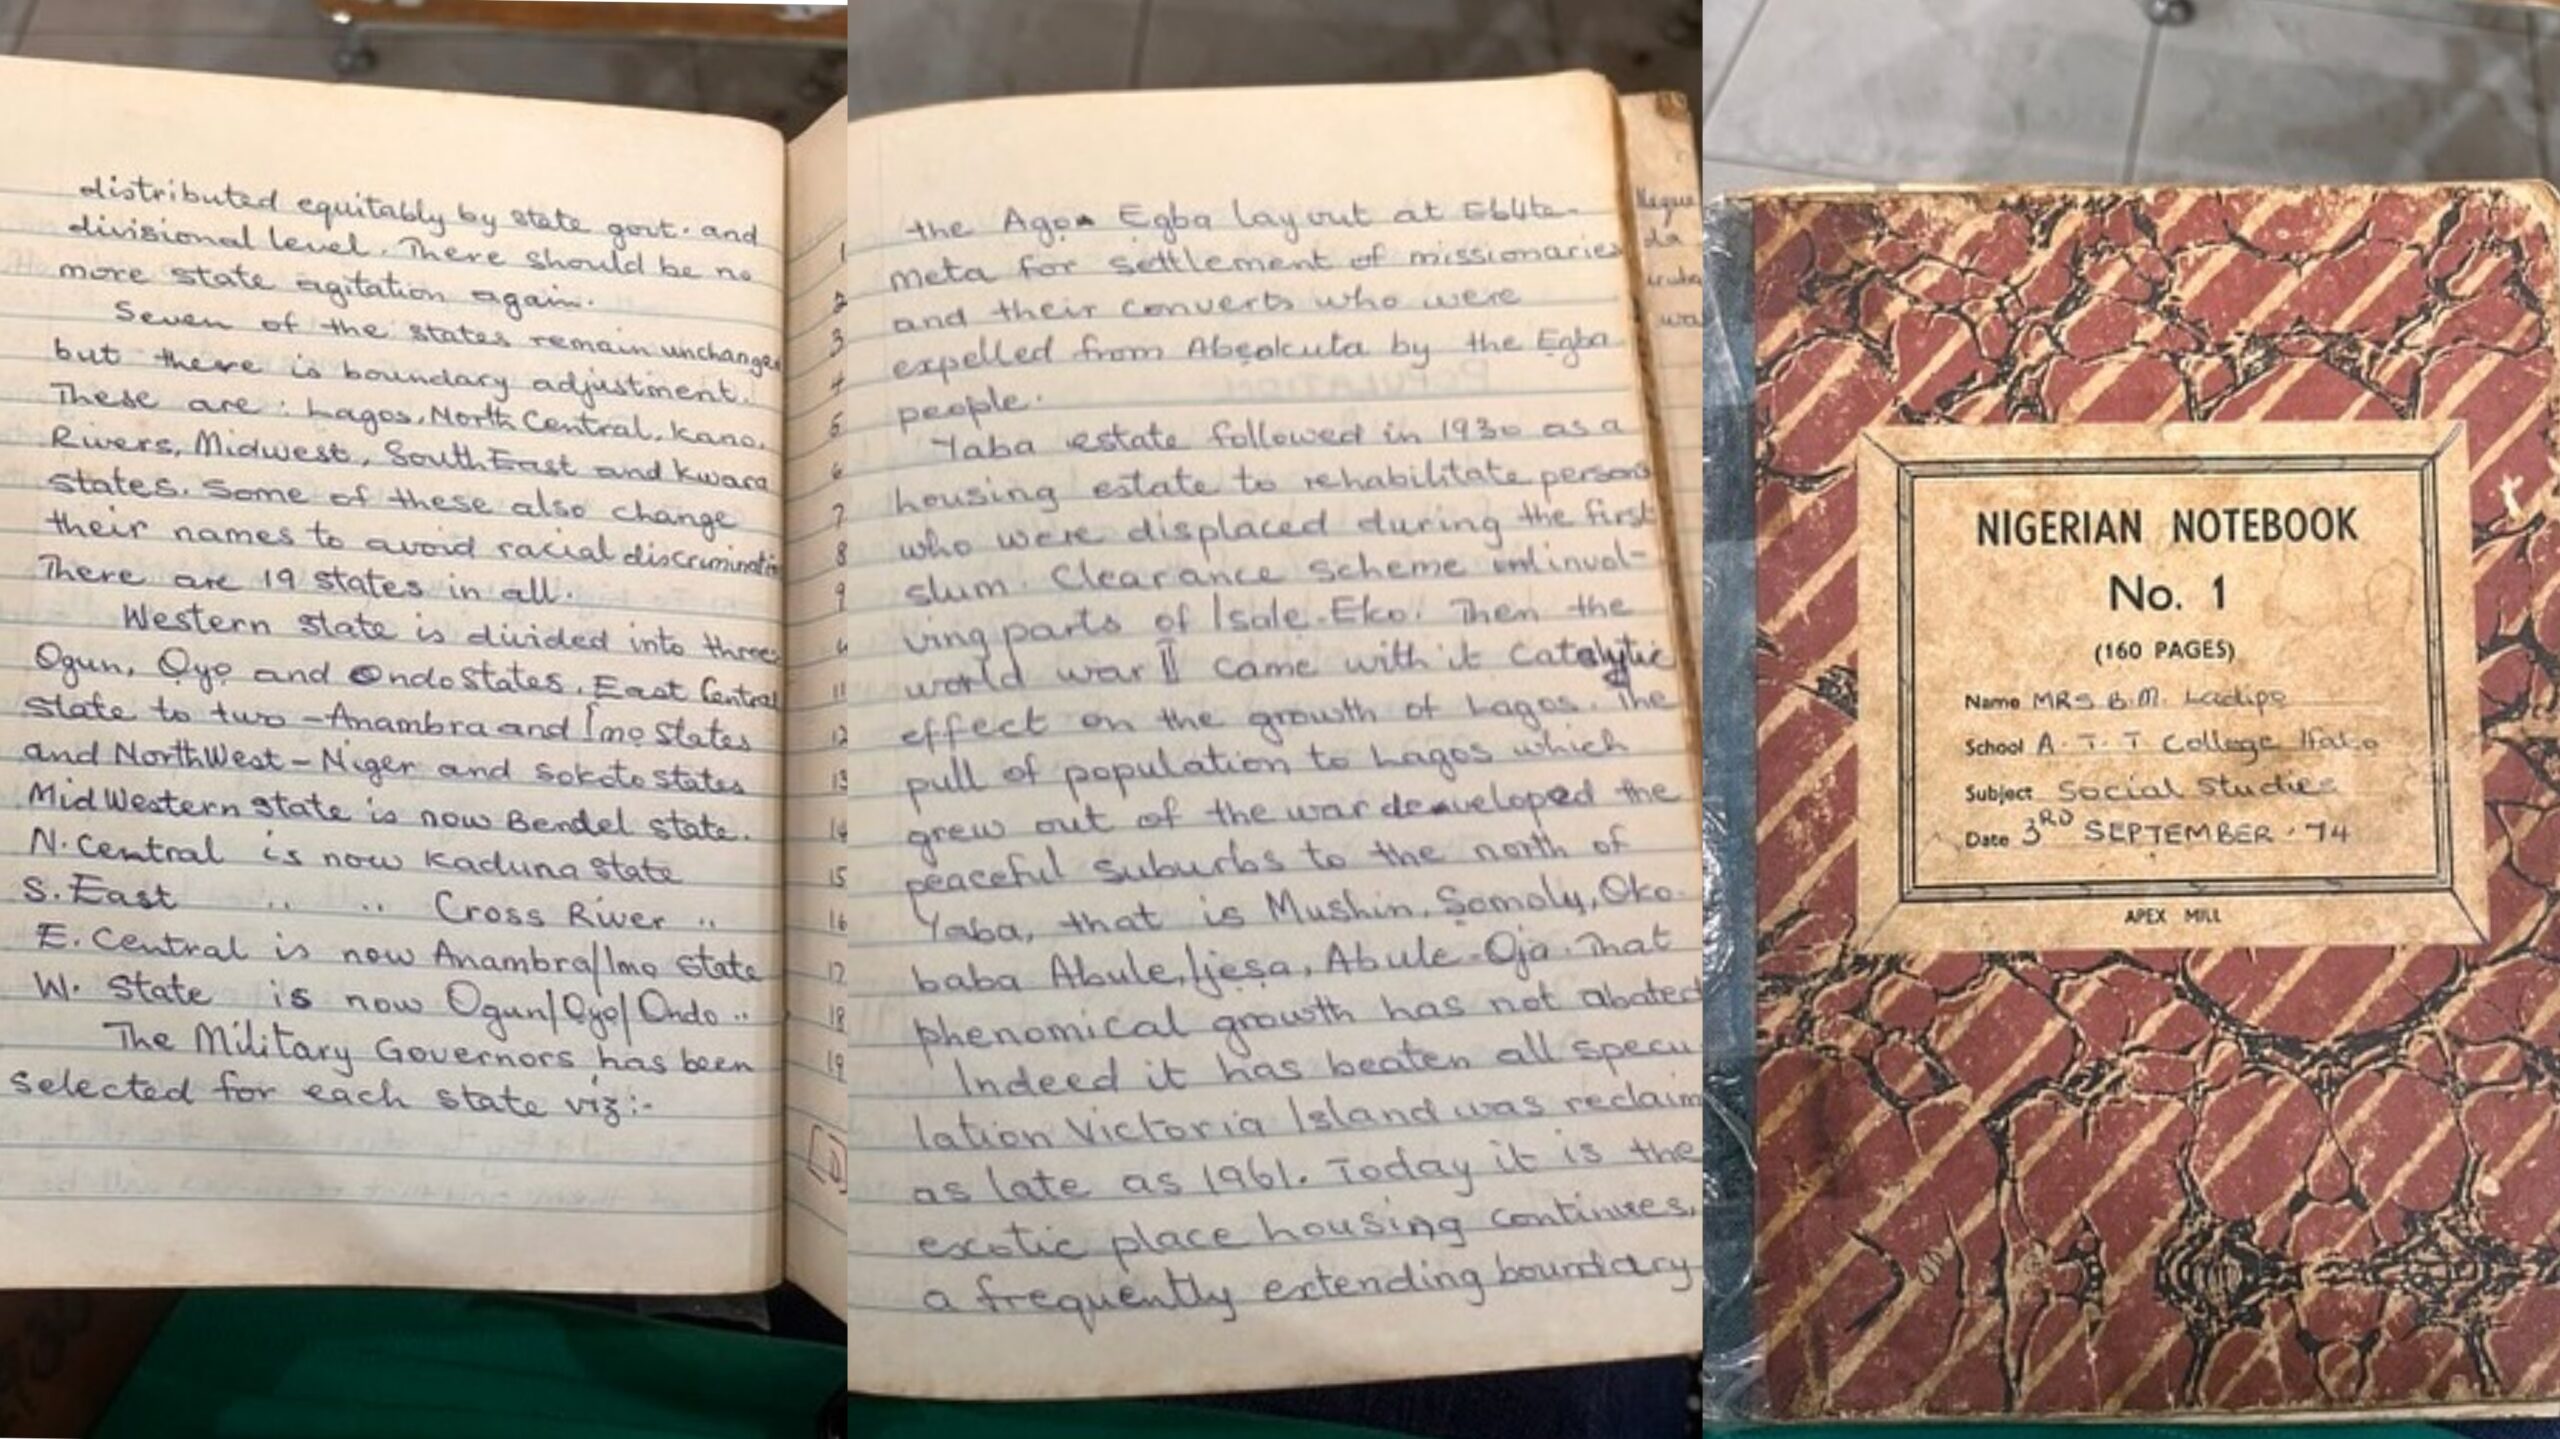 distributed equitably by state govt. and
divisional level. There should be no
more state agitation again.
Seven of the states remain unchanged
but there is boundary adjustment.
These are: Lagos, North Central, Kano,
Rivers, Midwest, South East and Kwara
states. Some of these also change
their names to avoid racial discriminatin
There are 19 states in all.
Western State is divided into three
Ogun, Ọyọ and Ondo States, East Central
State to two - Anambra and Imo States
and North West - Niger and Sokoto States
Mid Western State is now Bendel State.
N. Central is now Kaduna State
S. East " " Cross River "
E. Central is now Anambra/Imo State
W. State is now Ogun/Ọyọ/Ondo "
The Military Governors has been
selected for each state viz:-
1
2
3
4
5
6
7
8
9
11
12
13
14
15
16
17
18
19
the Ago Ẹgba layout at Ebute-
meta for settlement of missionaries
and their converts who were
expelled from Abẹokuta by the Ẹgba
people.
Yaba estate followed in 1930 as a
housing estate to rehabilitate persons
who were displaced during the first
slum. Clearance Scheme invol-
ving parts of Isale-Eko. Then the
world war II came with it Catalytic
effect on the growth of Lagos. The
pull of population to Lagos which
grew out of the war developed the
peaceful suburbs to the north of
Yaba, that is Mushin, Ṣomolu, Oko-
baba Abule, Ijẹṣa, Abule-Ọja. That
phenomical growth has not abated
Indeed it has beaten all specu
lation Victoria Island was reclaim
as late as 1961. Today it is the
exotic place housing continues,
a frequently extending boundary
NIGERIAN NOTEBOOK
No. 1
(160 PAGES)
Name MRS B.M. Ladipọ
School A.T.T College Ifako
Subject Social Studies
Date 3RD SEPTEMBER. 74
APEX MILL